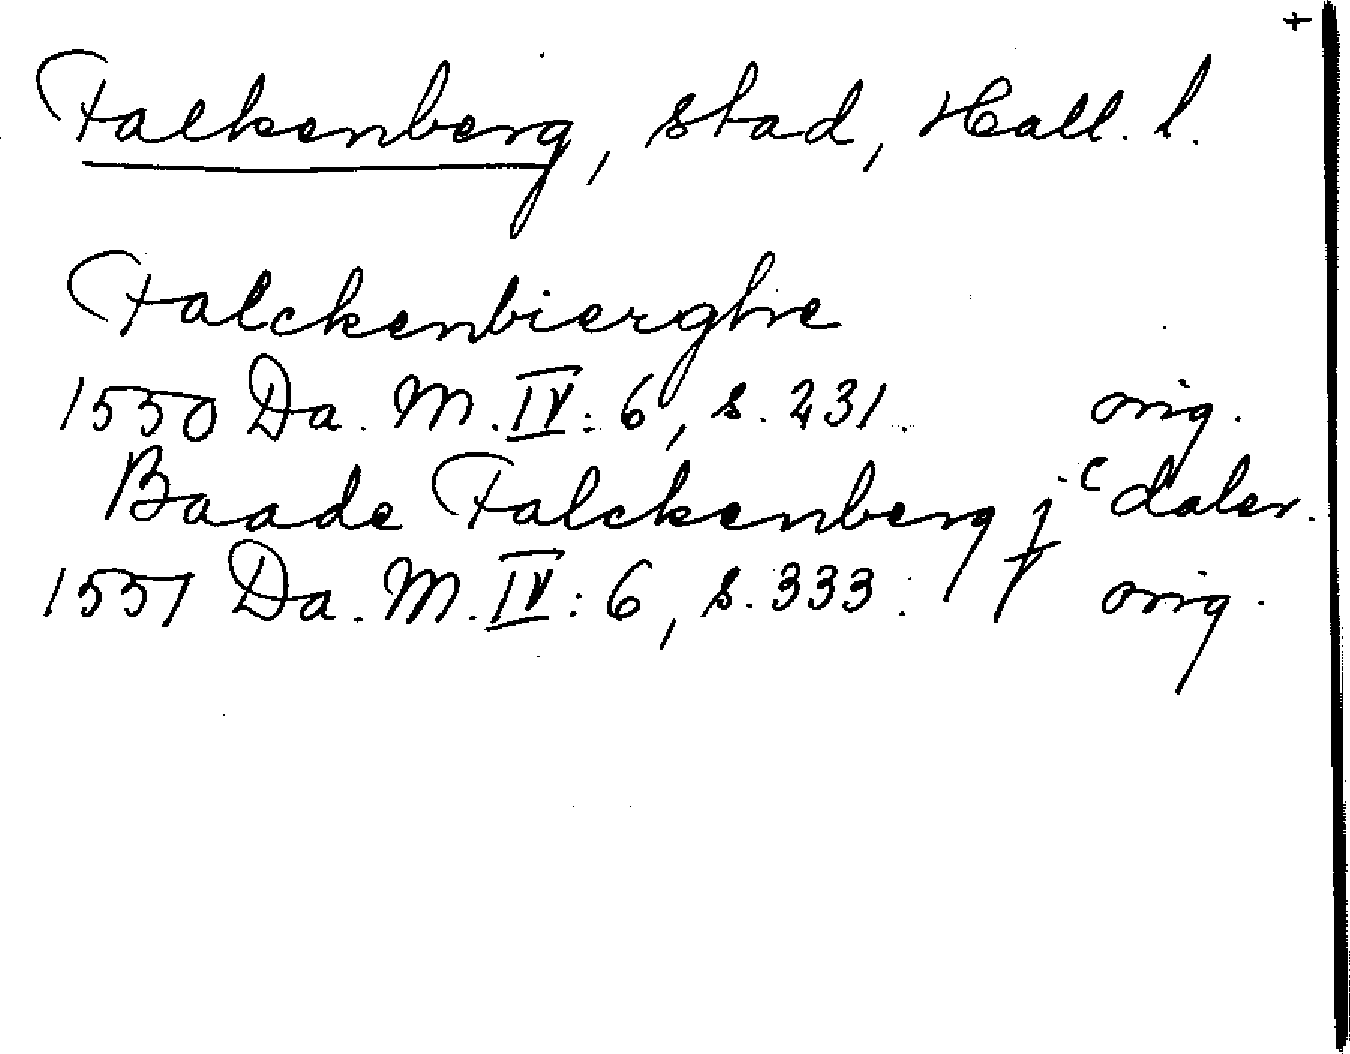 +
Falkenberg, stad, Hall. l.
Falckenbierghe
1550 Da. M. IV: 6, s. 231. orig.
Baade Falckenberg jᶜ daler.
1551 Da. M. IV: 6, s. 333. orig.